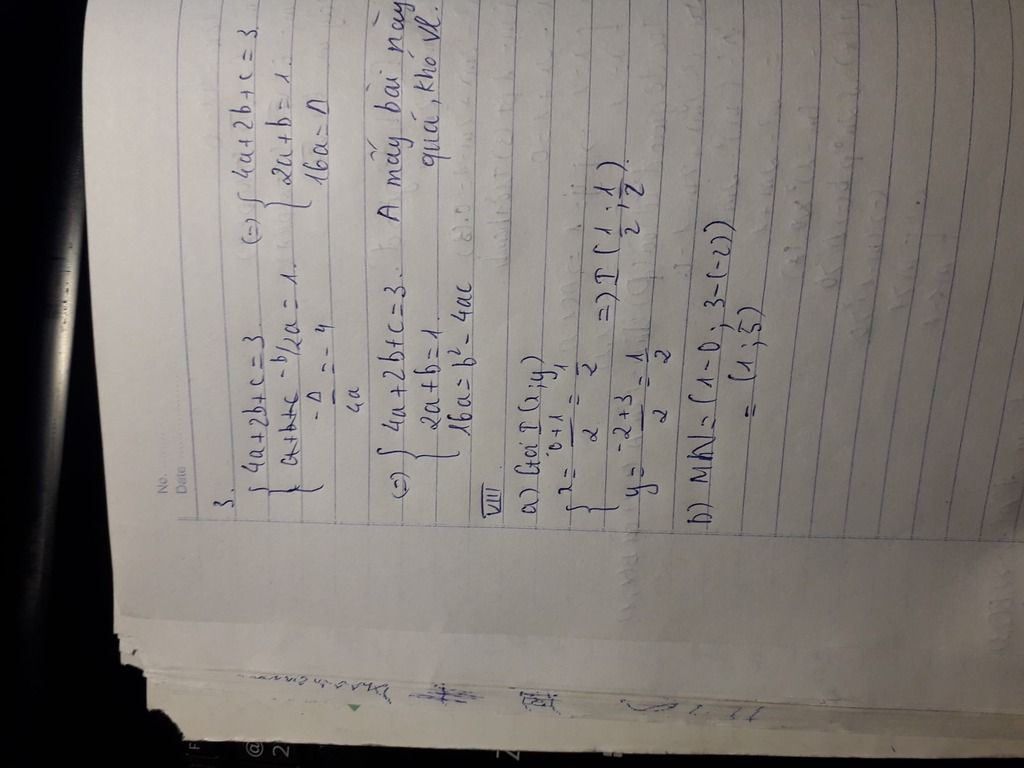 No.
Date
3.
{ 4a+2b+c=3
{ a+b+c -b/2a = 1.
{ -Δ/4a = 4
(=) { 4a+2b+c=3
{ 2a+b=1.
16a=Δ
(=) { 4a+2b+c=3.
{ 2a+b=1
16a=b²-4ac
A mấy bài này
quá, khó vl.
VIII
a) Gọi I(x;y)
{ x = 0+1/2 = 1/2
{ y = -2+3/2 = 1/2
=) I (1/2; 1/2).
b) MN = (1-0; 3-(-2))
= (1;5)